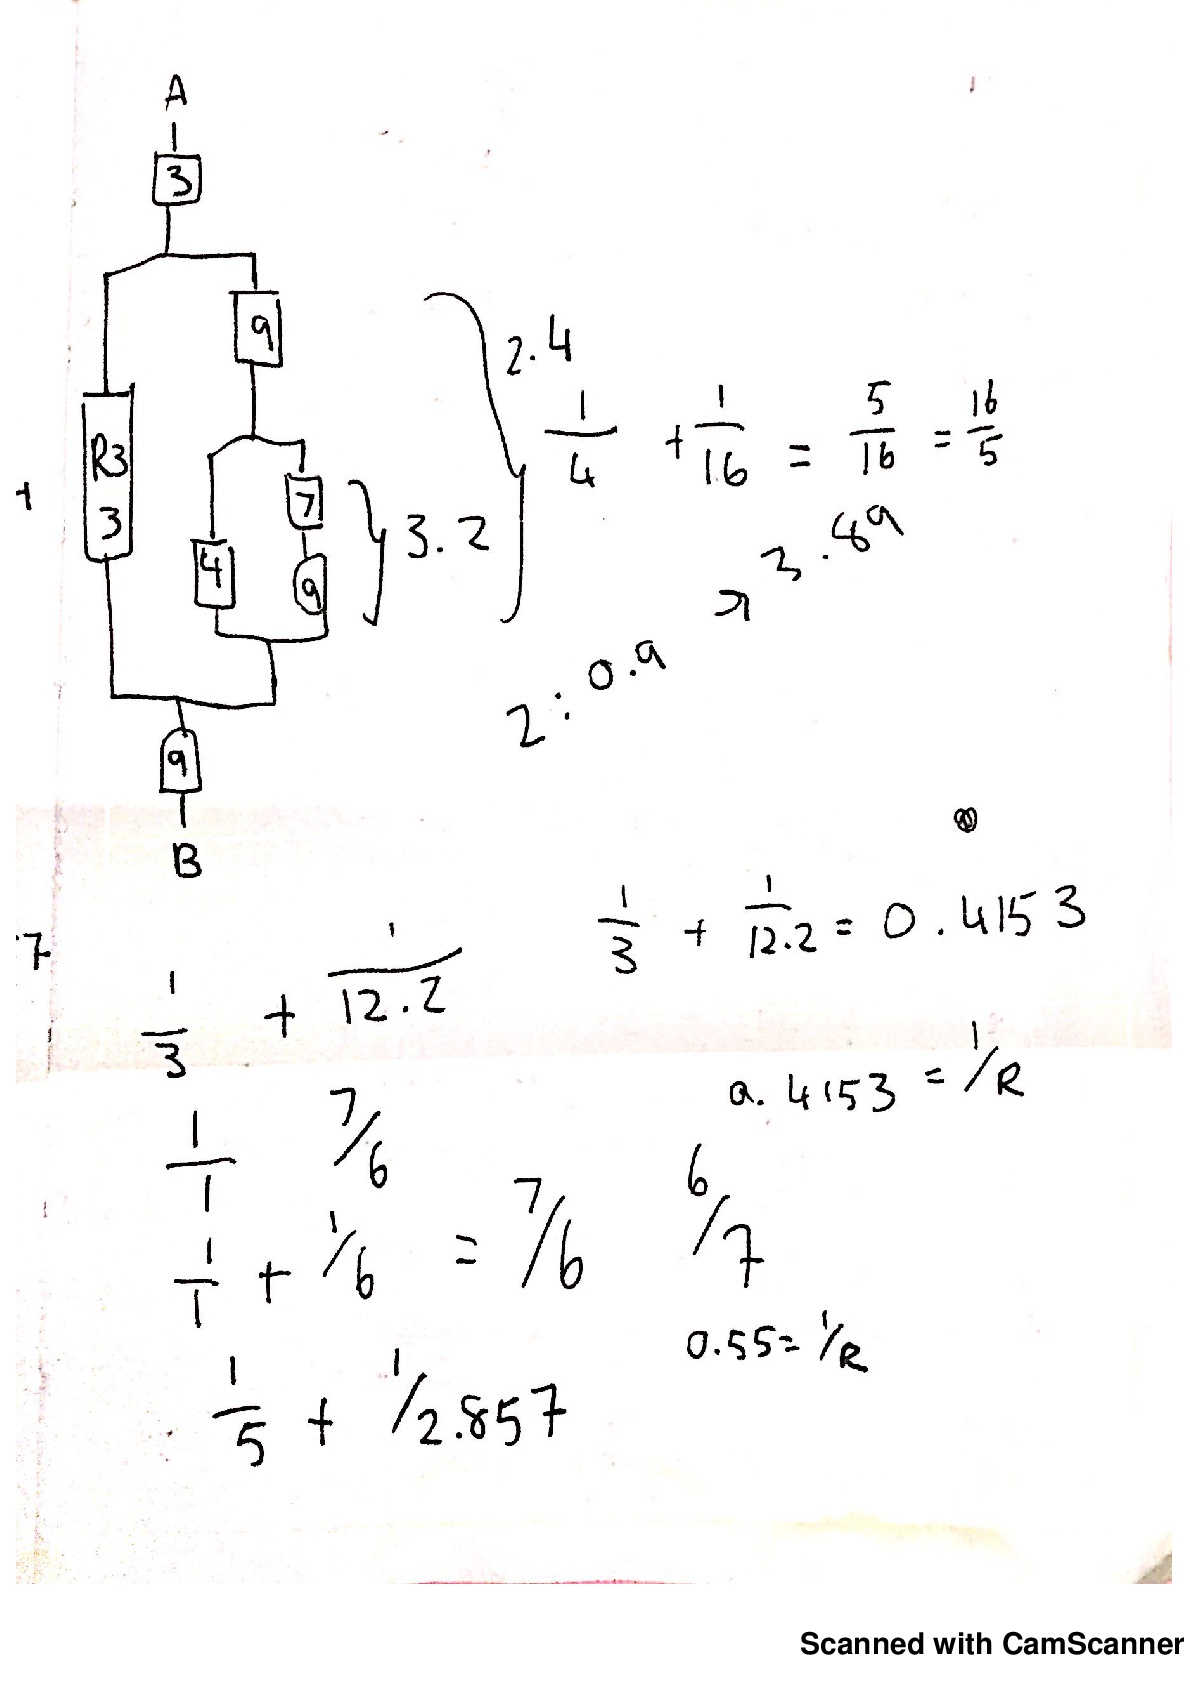 A
3
9
R3
3
7
4
9
9
B
3.2
2.4
1/4 + 1/16 = 5/16 = 16/5
3.89
2 : 0.9
7
1/3 + 1/12.2
1/3 + 1/12.2 = 0.4153
0.4153 = 1/R
1/1 7/6
1/1 + 1/6 = 7/6 6/7
0.55 = 1/R
1/5 + 1/2.857
Scanned with CamScanner